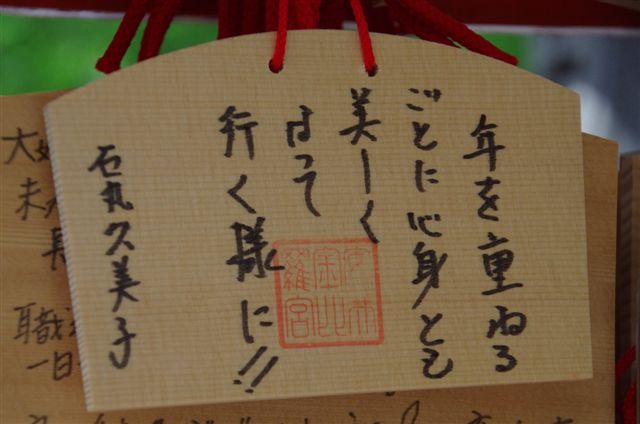 年を重ねる
ごとに心身とも
美しく
なって
行く様に!!
石丸久美子
職
一日